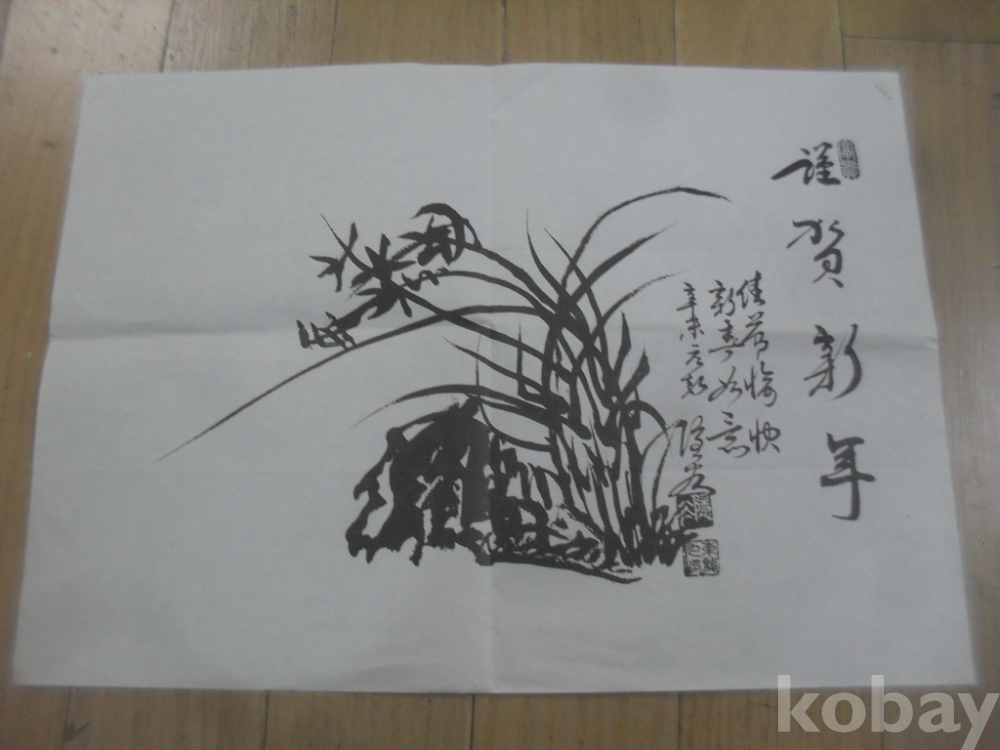 謹賀新年
佳節愉快
新春如意
辛未元旦
kobay